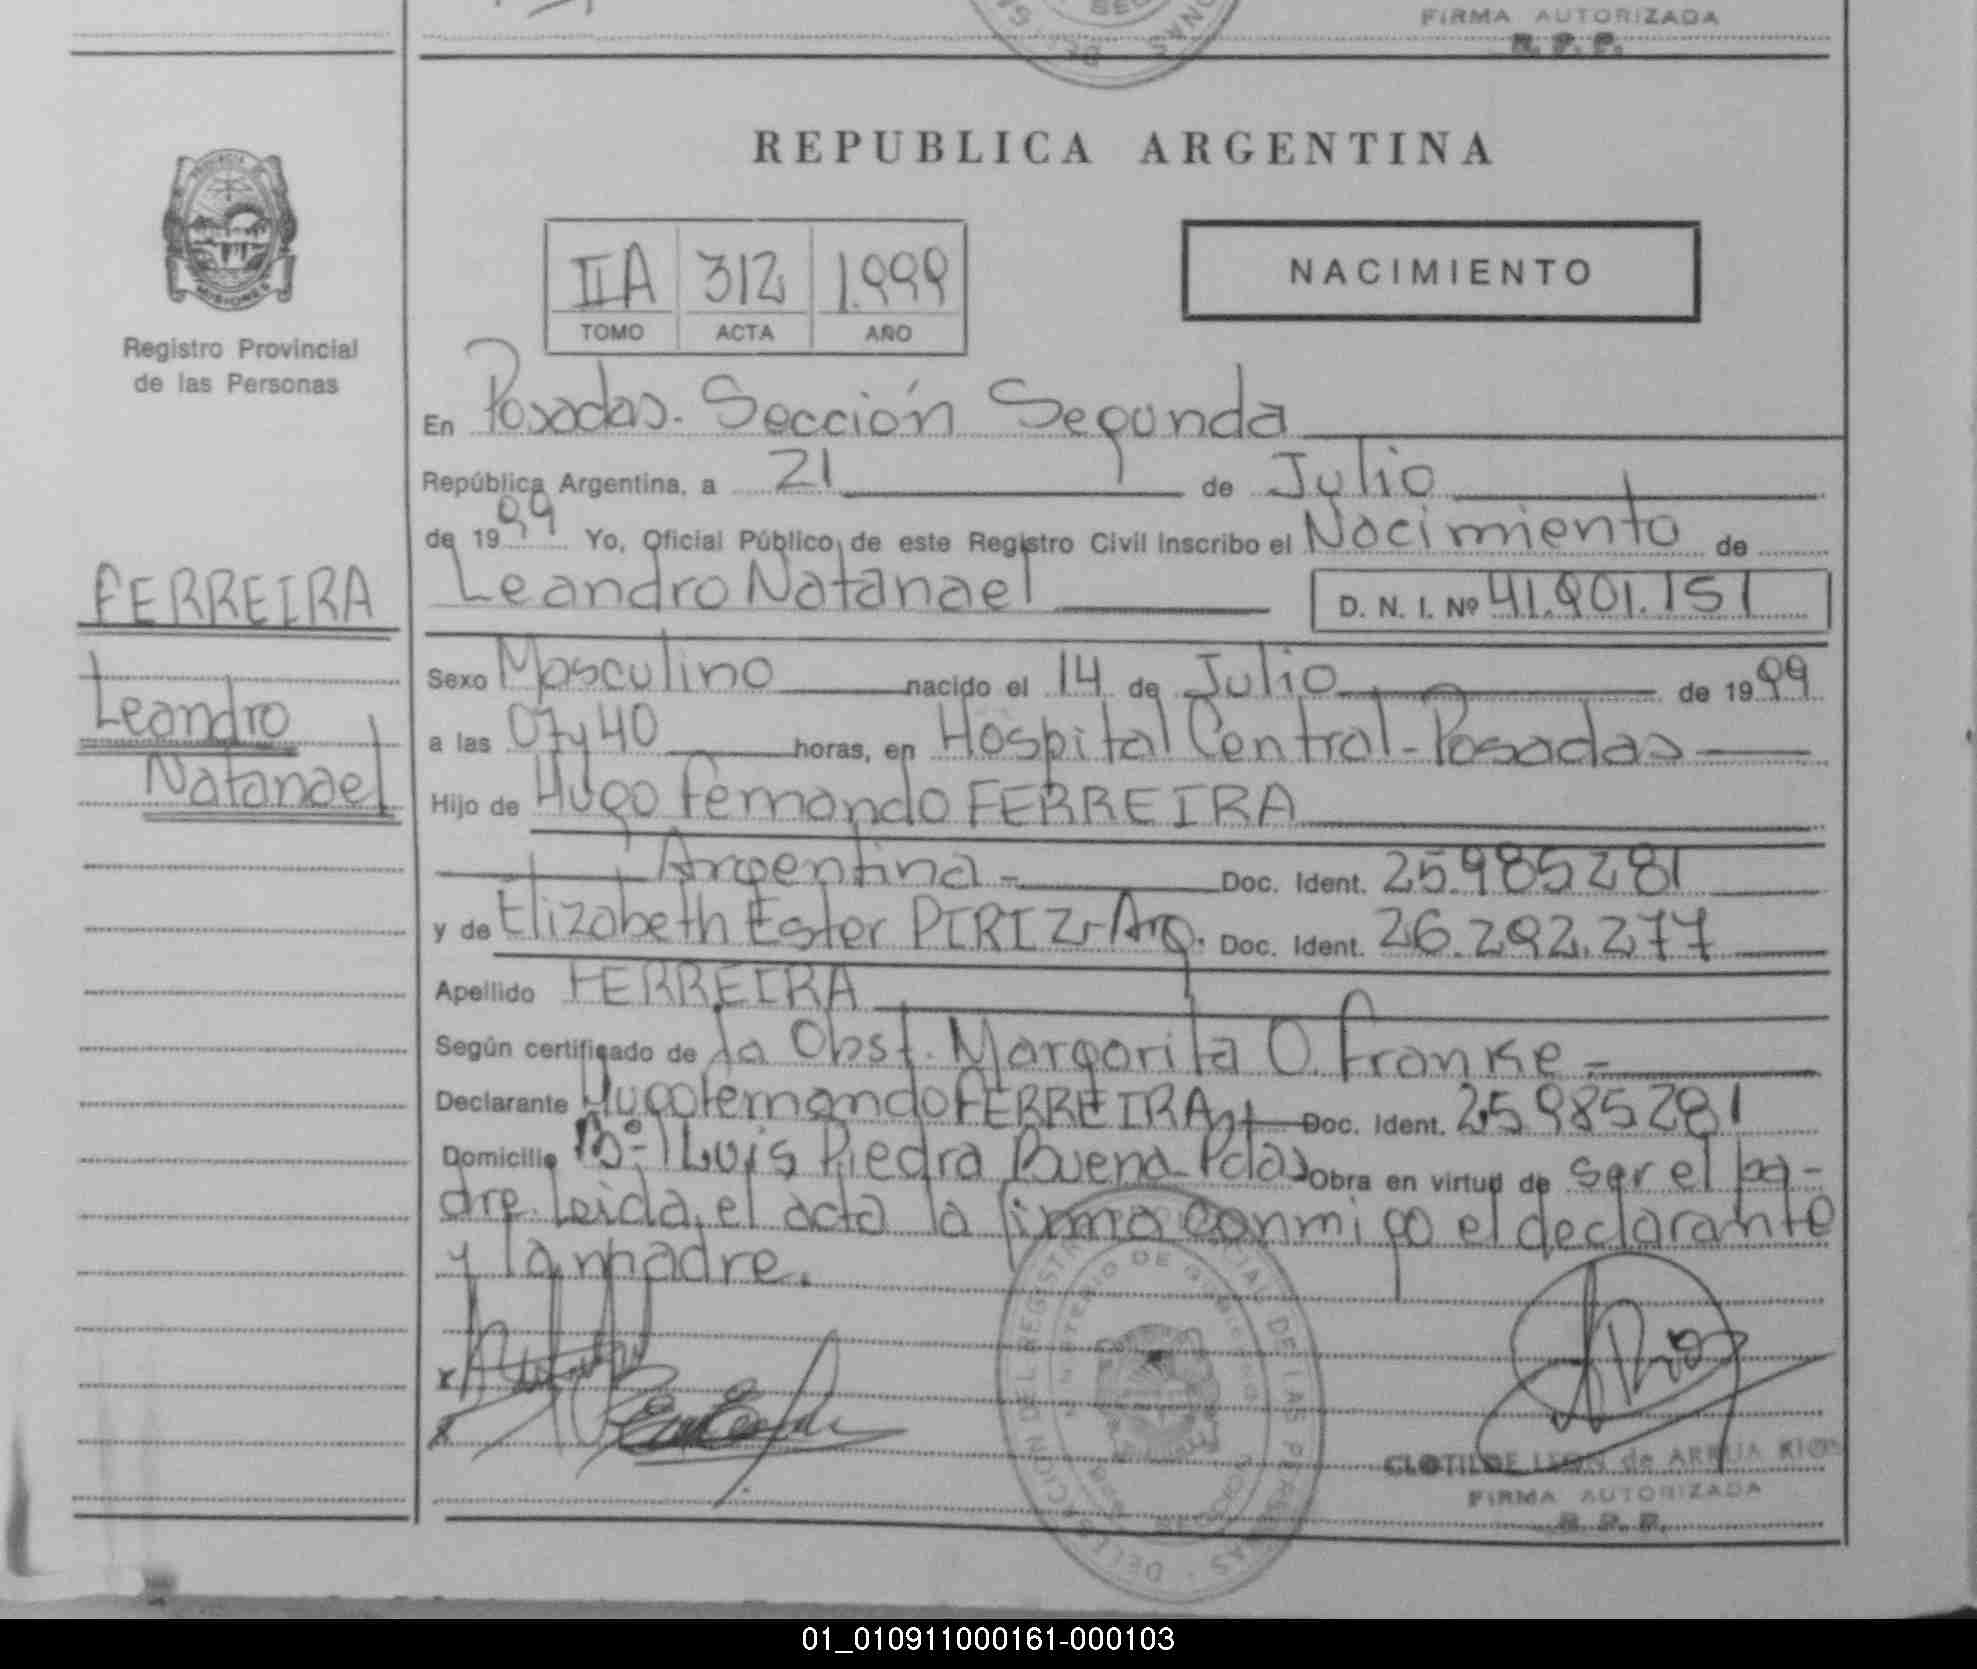 FIRMA AUTORIZADA
R. P. P.
REPUBLICA ARGENTINA
IIA 312 1.999
TOMO ACTA AÑO
NACIMIENTO
MISIONES
Registro Provincial
de las Personas
En Posadas. Sección Segunda
República Argentina, a 21 de Julio
de 1999 Yo, Oficial Público, de este Registro Civil Inscribo el Nacimiento de
Leandro Natanael D. N. I. Nº 41.901.151
FERREIRA
Leandro
Natanael
Sexo Masculino nacido el 14 de Julio de 1999
a las 07y40 horas, en Hospital Central - Posadas
Hijo de Hugo Fernando FERREIRA
Argentina - Doc. Ident. 25.985281
y de Elizabeth Ester PIRIZ - Arg. Doc. Ident. 26.292.277
Apellido FERREIRA
Según certificado de la Obst. Margarita O. Franke -
Declarante Hugo Fernando FERREIRA Doc. Ident. 25985281
Domicilio Bº Luis Piedra Buena - Pdas Obra en virtud de ser el pa-
dre. Leida el acta la firma conmigo el declarante
y la madre.
CLOTILDE LEON de ARRUA RIOS
FIRMA AUTORIZADA
R. P. P.
01_010911000161-000103